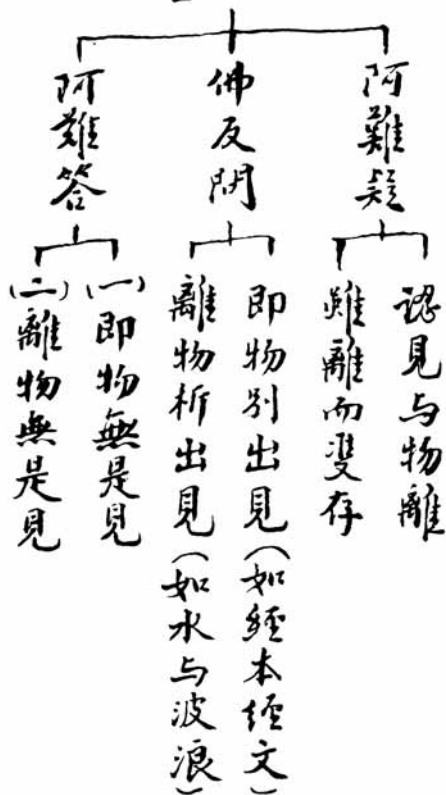 阿難疑
認見与物離
雖離而雙存
佛反問
即物別出見（如經本經文）
離物析出見（如水与波浪）
阿難答
(一)即物無是見
(二)離物無是見